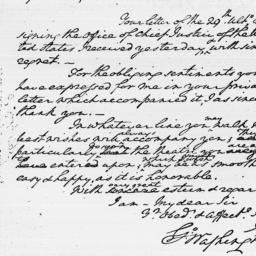 Your letter of the 29th Ulto.
signing the Office of Chief Justice of the
ted States, I received yesterday, with sin
regret. —
For the obliging sentiments you
have expressed for me in your priva
letter which accompanied it, I as since
thank you. —
In whatever line you may walk, m
best wishes will always accompany you;
particularly on the you
have entered upon, which I wish may be as smooth
easy & happy, as it is honorable.
With very great esteem & regar
I am — My dear Sir
Yr. Obed. & Affecte. S
Go Washingt